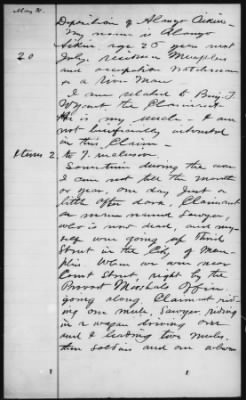 May 31.
Deposition of Alonzo Aikin.
My name is Alonzo
Aikin, age 25 year next
20
July, residence Memphis
and occupation watchman
on a river Man
I am related to Benj. F.
the Claimant
He is my uncle. I am
not beneficially interested
in this Claim
Item 2 to 7. inclusive.
Sometime during the war
I can not tell the month
or year, one day just a
little after dark, Claimant
a man named Sawyer,
who is now dead, and my-
self were going up Third
Street in the City of Mem-
phis When we were near
Court Street, right by the
Provost Marshals Office
going along, Claimant rid-
ing one mule, Sawyer riding
in a wagon driving one
and I leading two mules,